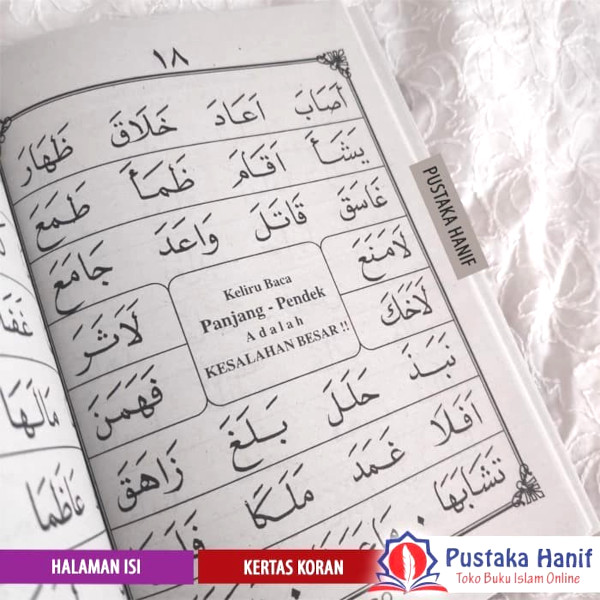 ١٨
أَصَابَ اَعَادَ خَلَاقَ ظَهَارَ
يَشَأَ اَقَامَ ظَمَأَ طَمَعَ
غَاسَقَ قَاتَلَ وَاعَدَ جَامَعَ
لَامَنَعَ
لَاخَكَ
Keliru Baca
Panjang - Pendek
Adalah
KESALAHAN BESAR !!
لَاثَرَ
فَهَمَنَ
نَبَذَ حَلَلَ بَلَغَ زَاهَقَ
اَفَلَا غَمَدَ مَلَكًا
تَشَابَهَا
مَالَهَا
عَاظَمَا
PUSTAKA HANIF
HALAMAN ISI
KERTAS KORAN
Pustaka Hanif
Toko Buku Islam Online